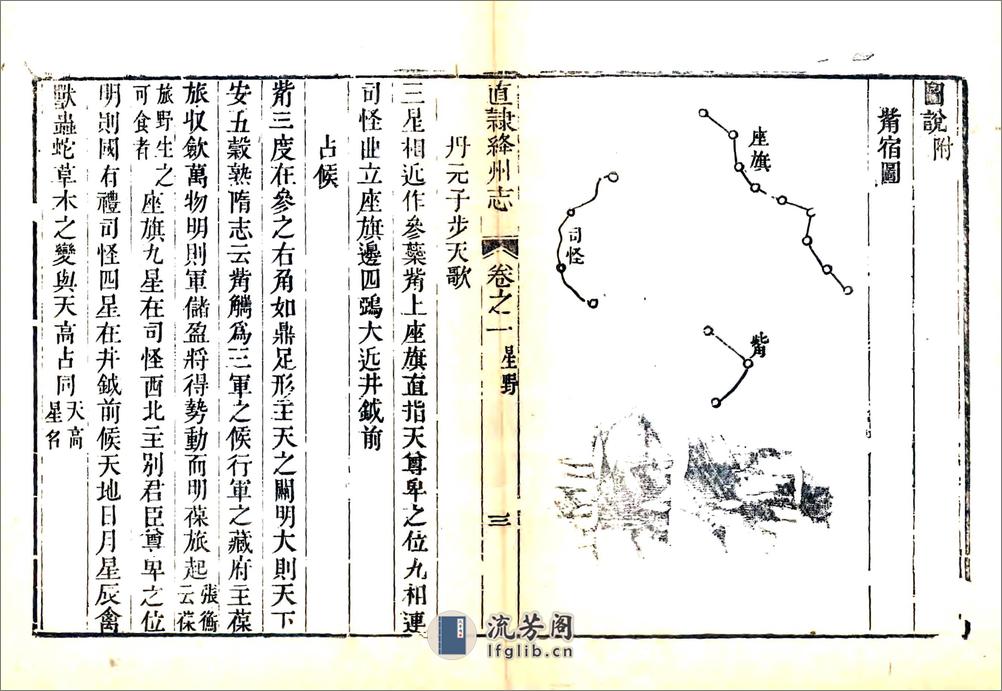 圖說附
觜宿圖
座旗
司怪
觜
直隸絳州志
卷之一
星野
三
丹元子步天歌
三星相近作參蘂觜上座旗直指天尊卑之位九相連
司怪曲立座旗邊四鴉大近井鉞前
占候
觜三度在參之右角如鼎足形主天之關明大則天下
安五穀熟隋志云觜觿爲三軍之候行軍之藏府主葆
旅収斂萬物明則軍儲盈將得勢動而明葆旅起張衡云葆
旅野生之可食者座旗九星在司怪西北主別君臣尊卑之位
明則國有禮司怪四星在井鉞前候天地日月星辰禽
獸蟲蛇草木之變與天高占同天高星名
流芳阁
lfglib.cn